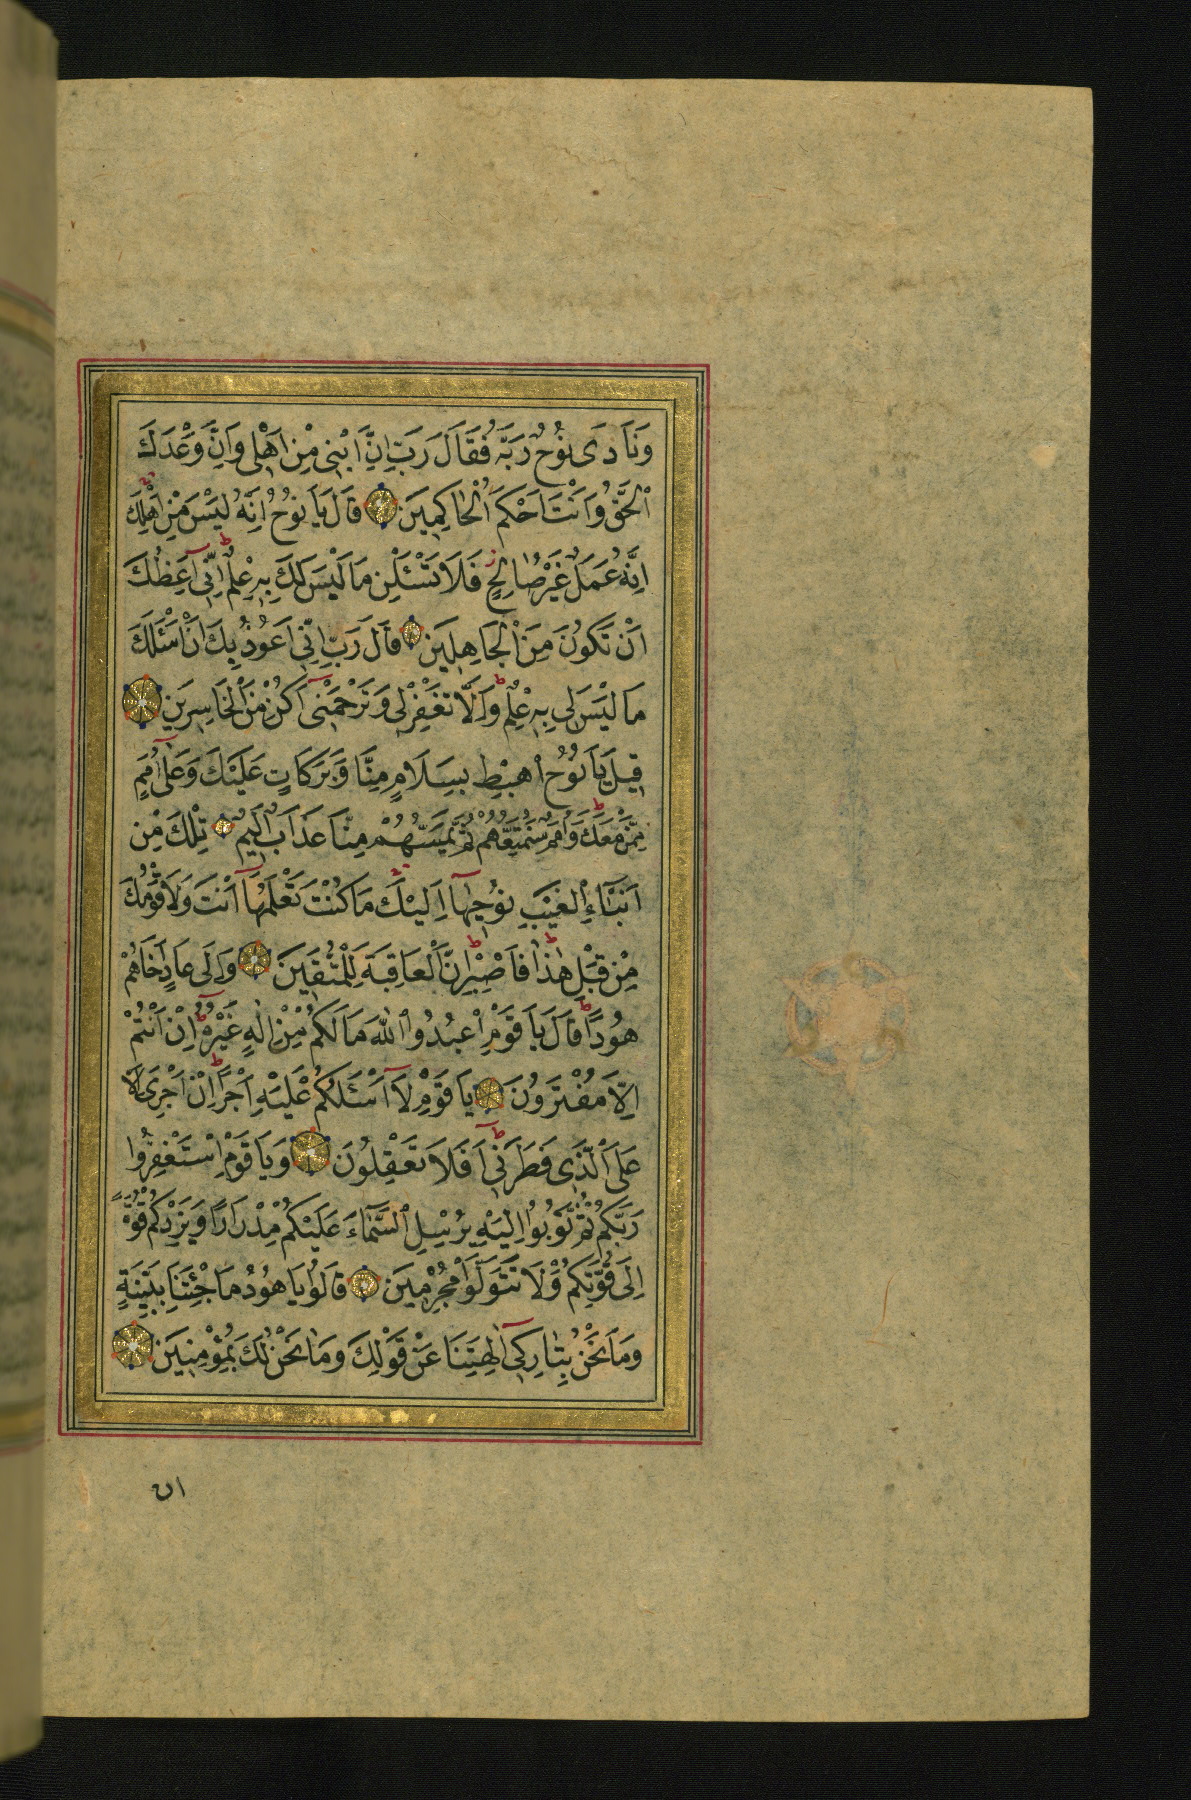 وَنَادَى نُوحٌ رَبَّهُ فَقَالَ رَبِّ اِنَّ ابْنِى مِنْ اَهْلِى وَاِنَّ وَعْدَكَ
الْحَقُّ وَاَنْتَ اَحْكَمُ الْحَاكِمِينَ قَالَ يَا نُوحُ اِنَّهُ لَيْسَ مِنْ اَهْلِكَ
اِنَّهُ عَمَلٌ غَيْرُ صَالِحٍ فَلَا تَسْـَٔلْنِ مَا لَيْسَ لَكَ بِهِ عِلْمٌ اِنِّى اَعِظُكَ
اَنْ تَكُونَ مِنَ الْجَاهِلِينَ قَالَ رَبِّ اِنِّى اَعُوذُ بِكَ اَنْ اَسْـَٔلَكَ
مَا لَيْسَ لِى بِهِ عِلْمٌ وَاِلَّا تَغْفِرْ لِى وَتَرْحَمْنِى اَكُنْ مِنَ الْخَاسِرِينَ
قِيلَ يَا نُوحُ اهْبِطْ بِسَلَامٍ مِنَّا وَبَرَكَاتٍ عَلَيْكَ وَعَلٰى اُمَمٍ
مِمَّنْ مَعَكَ وَاُمَمٌ سَنُمَتِّعُهُمْ ثُمَّ يَمَسُّهُمْ مِنَّا عَذَابٌ اَلِيمٌ تِلْكَ مِنْ
اَنْبَاءِ الْغَيْبِ نُوحِيهَا اِلَيْكَ مَا كُنْتَ تَعْلَمُهَا اَنْتَ وَلَا قَوْمُكَ
مِنْ قَبْلِ هٰذَا فَاصْبِرْ اِنَّ الْعَاقِبَةَ لِلْمُتَّقِينَ وَاِلَى عَادٍ اَخَاهُمْ
هُودًا قَالَ يَا قَوْمِ اعْبُدُوا اللّٰهَ مَا لَكُمْ مِنْ اِلٰهٍ غَيْرُهُ اِنْ اَنْتُمْ
اِلَّا مُفْتَرُونَ يَا قَوْمِ لَا اَسْـَٔلُكُمْ عَلَيْهِ اَجْرًا اِنْ اَجْرِىَ اِلَّا
عَلَى الَّذِى فَطَرَنِى اَفَلَا تَعْقِلُونَ وَيَا قَوْمِ اسْتَغْفِرُوا
رَبَّكُمْ ثُمَّ تُوبُوا اِلَيْهِ يُرْسِلِ السَّمَاءَ عَلَيْكُمْ مِدْرَارًا وَيَزِدْكُمْ قُوَّةً
اِلَى قُوَّتِكُمْ وَلَا تَتَوَلَّوْا مُجْرِمِينَ قَالُوا يَا هُودُ مَا جِئْتَنَا بِبَيِّنَةٍ
وَمَا نَحْنُ بِتَارِكِى اٰلِهَتِنَا عَنْ قَوْلِكَ وَمَا نَحْنُ لَكَ بِمُؤْمِنِينَ
ان